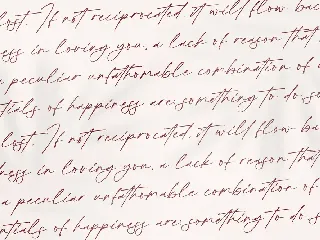 lost. If not reciprocated, it will flow bac
ess in loving you, a lack of reason that
a peculiar unfathomable combination of
tials of happiness are something to do, so
lost. If not reciprocated, it will flow ba
ness in loving you, a lack of reason that
a peculiar unfathomable combination of
ntials of happiness are something to do, s